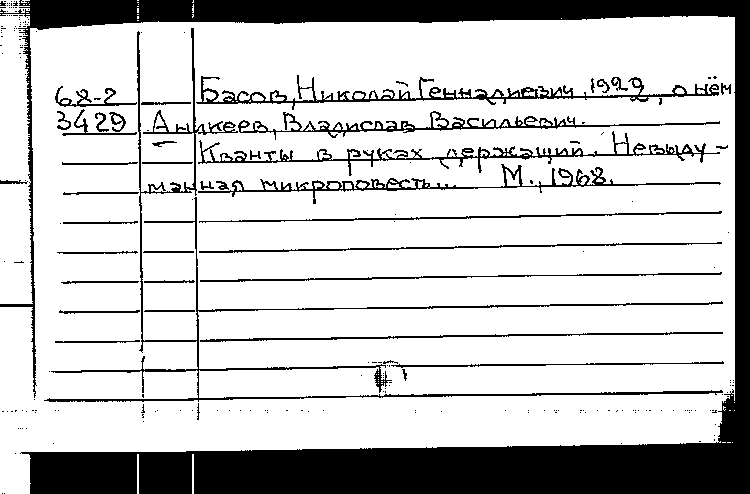 68-2 Басов, Николай Геннадиевич, 1922, о нём
3429 Аникеев, Владислав Васильевич.
Кванты в руках держащий. Невыду-
манная микроповесть... М., 1968.